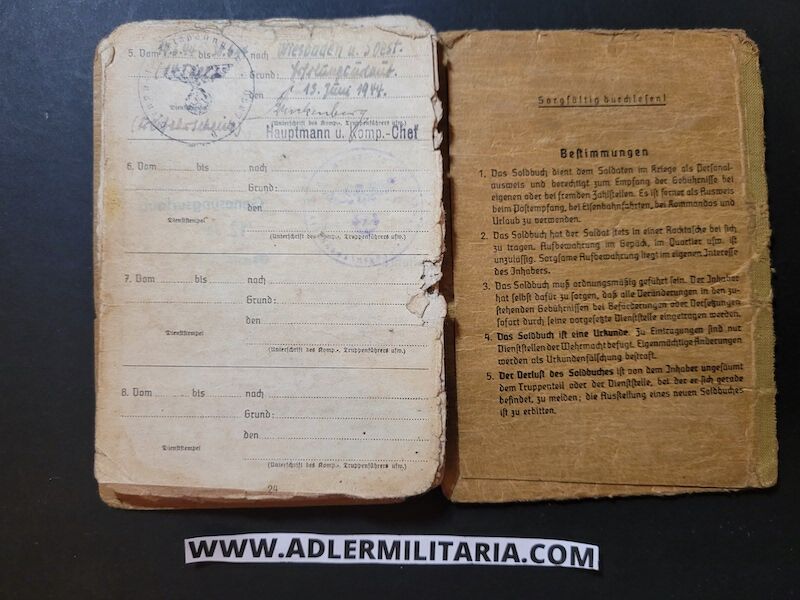 5. Vom bis nach Wiesbaden u.
Grund:
Dienststempel den 13. Juni 1944.
(Unterschrift des Komp.-, Truppenführers usw.)
Hauptmann u. Komp.-Chef
6. Vom bis nach
Grund:
den
Dienststempel
(Unterschrift des Komp.-, Truppenführers usw.)
7. Vom bis nach
Grund:
den
Dienststempel
(Unterschrift des Komp.-, Truppenführers usw.)
8. Vom bis nach
Grund:
den
Dienststempel
(Unterschrift des Komp.-, Truppenführers usw.)
24
Sorgfältig durchlesen!
Bestimmungen
1. Das Soldbuch dient dem Soldaten im Kriege als Personal-
ausweis und berechtigt zum Empfang der Gebührnisse bei
eigenen oder bei fremden Zahlstellen. Es ist ferner als Ausweis
beim Postempfang, bei Eisenbahnfahrten, bei Kommandos und
Urlaub zu verwenden.
2. Das Soldbuch hat der Soldat stets in einer Rocktasche bei sich
zu tragen. Aufbewahrung im Gepäck, im Quartier usw. ist
unzulässig. Sorgsame Aufbewahrung liegt im eigenen Interesse
des Inhabers.
3. Das Soldbuch muß ordnungsmäßig geführt sein. Der Inhaber
hat selbst dafür zu sorgen, daß alle Veränderungen in den zu-
stehenden Gebührnissen bei Beförderungen oder Versetzungen
sofort durch seine vorgesetzte Dienststelle eingetragen werden.
4. Das Soldbuch ist eine Urkunde. Zu Eintragungen sind nur
Dienststellen der Wehrmacht befugt. Eigenmächtige Änderungen
werden als Urkundenfälschung bestraft.
5. Der Verlust des Soldbuches ist von dem Inhaber ungesäumt
dem Truppenteil oder der Dienststelle, bei der er sich gerade
befindet, zu melden; die Ausstellung eines neuen Soldbuches
ist zu erbitten.
WWW.ADLERMILITARIA.COM